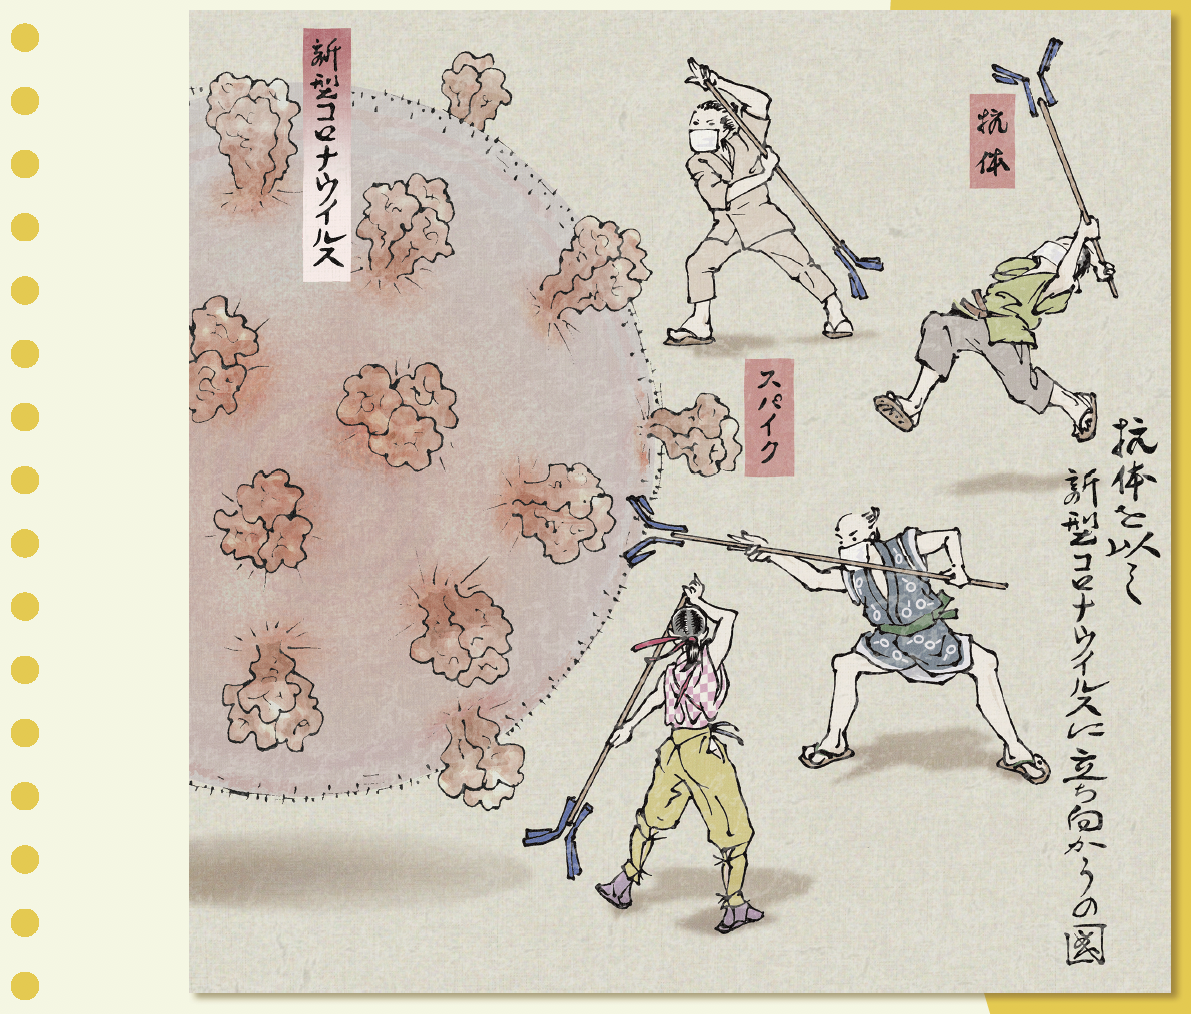 抗体を以て
新型コロナウイルスに立ち向かうの図
抗体
スパイク
新型コロナウイルス